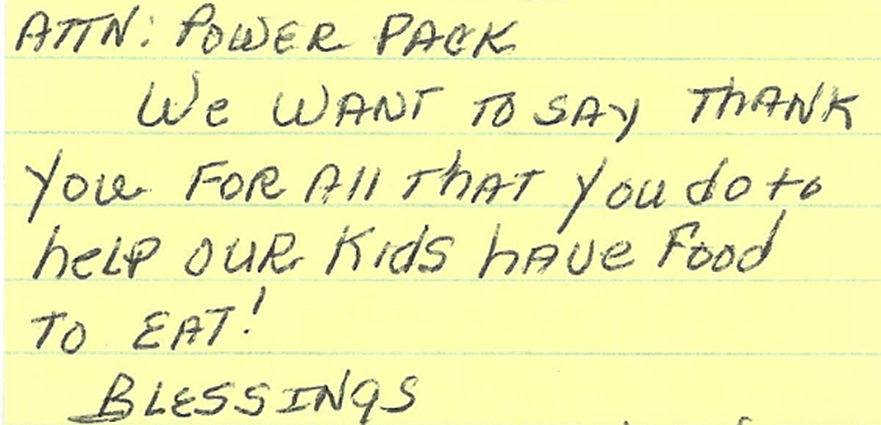 ATTN: POWER PACK
We WANT TO SAY ThANK
You FOR All ThAT you do to
help OUR Kids hAve Food
TO EAT!
BLESSINgS